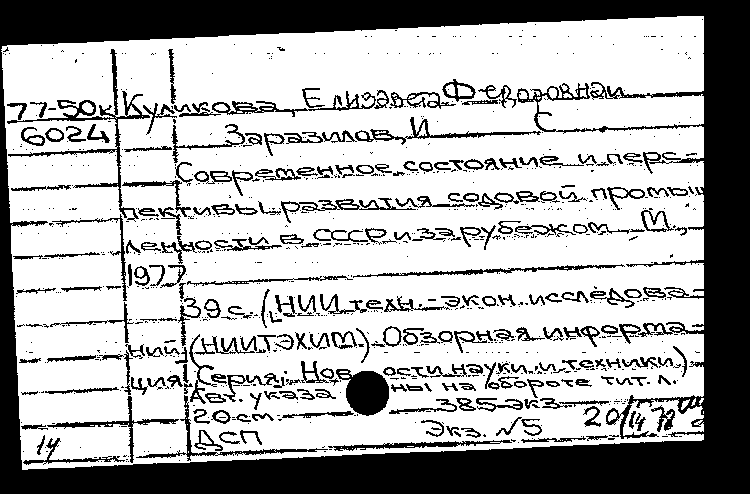 77-50к Куликова, Елизавета Федоровна и
6024 Заразилов, И С.
Современное состояние и перс-
пективы развития содовой промыш
ленности в СССР и за рубежом. М.,
1977
39 с. (НИИ техн.-экон. исследова-
ний (НИИТЭХИМ) Обзорная информа-
ция. Серия: Нов ости науки и техники)
Авт. указа ны на обороте тит. л.
20 см. 385 экз.
ДСП Экз. №5
14